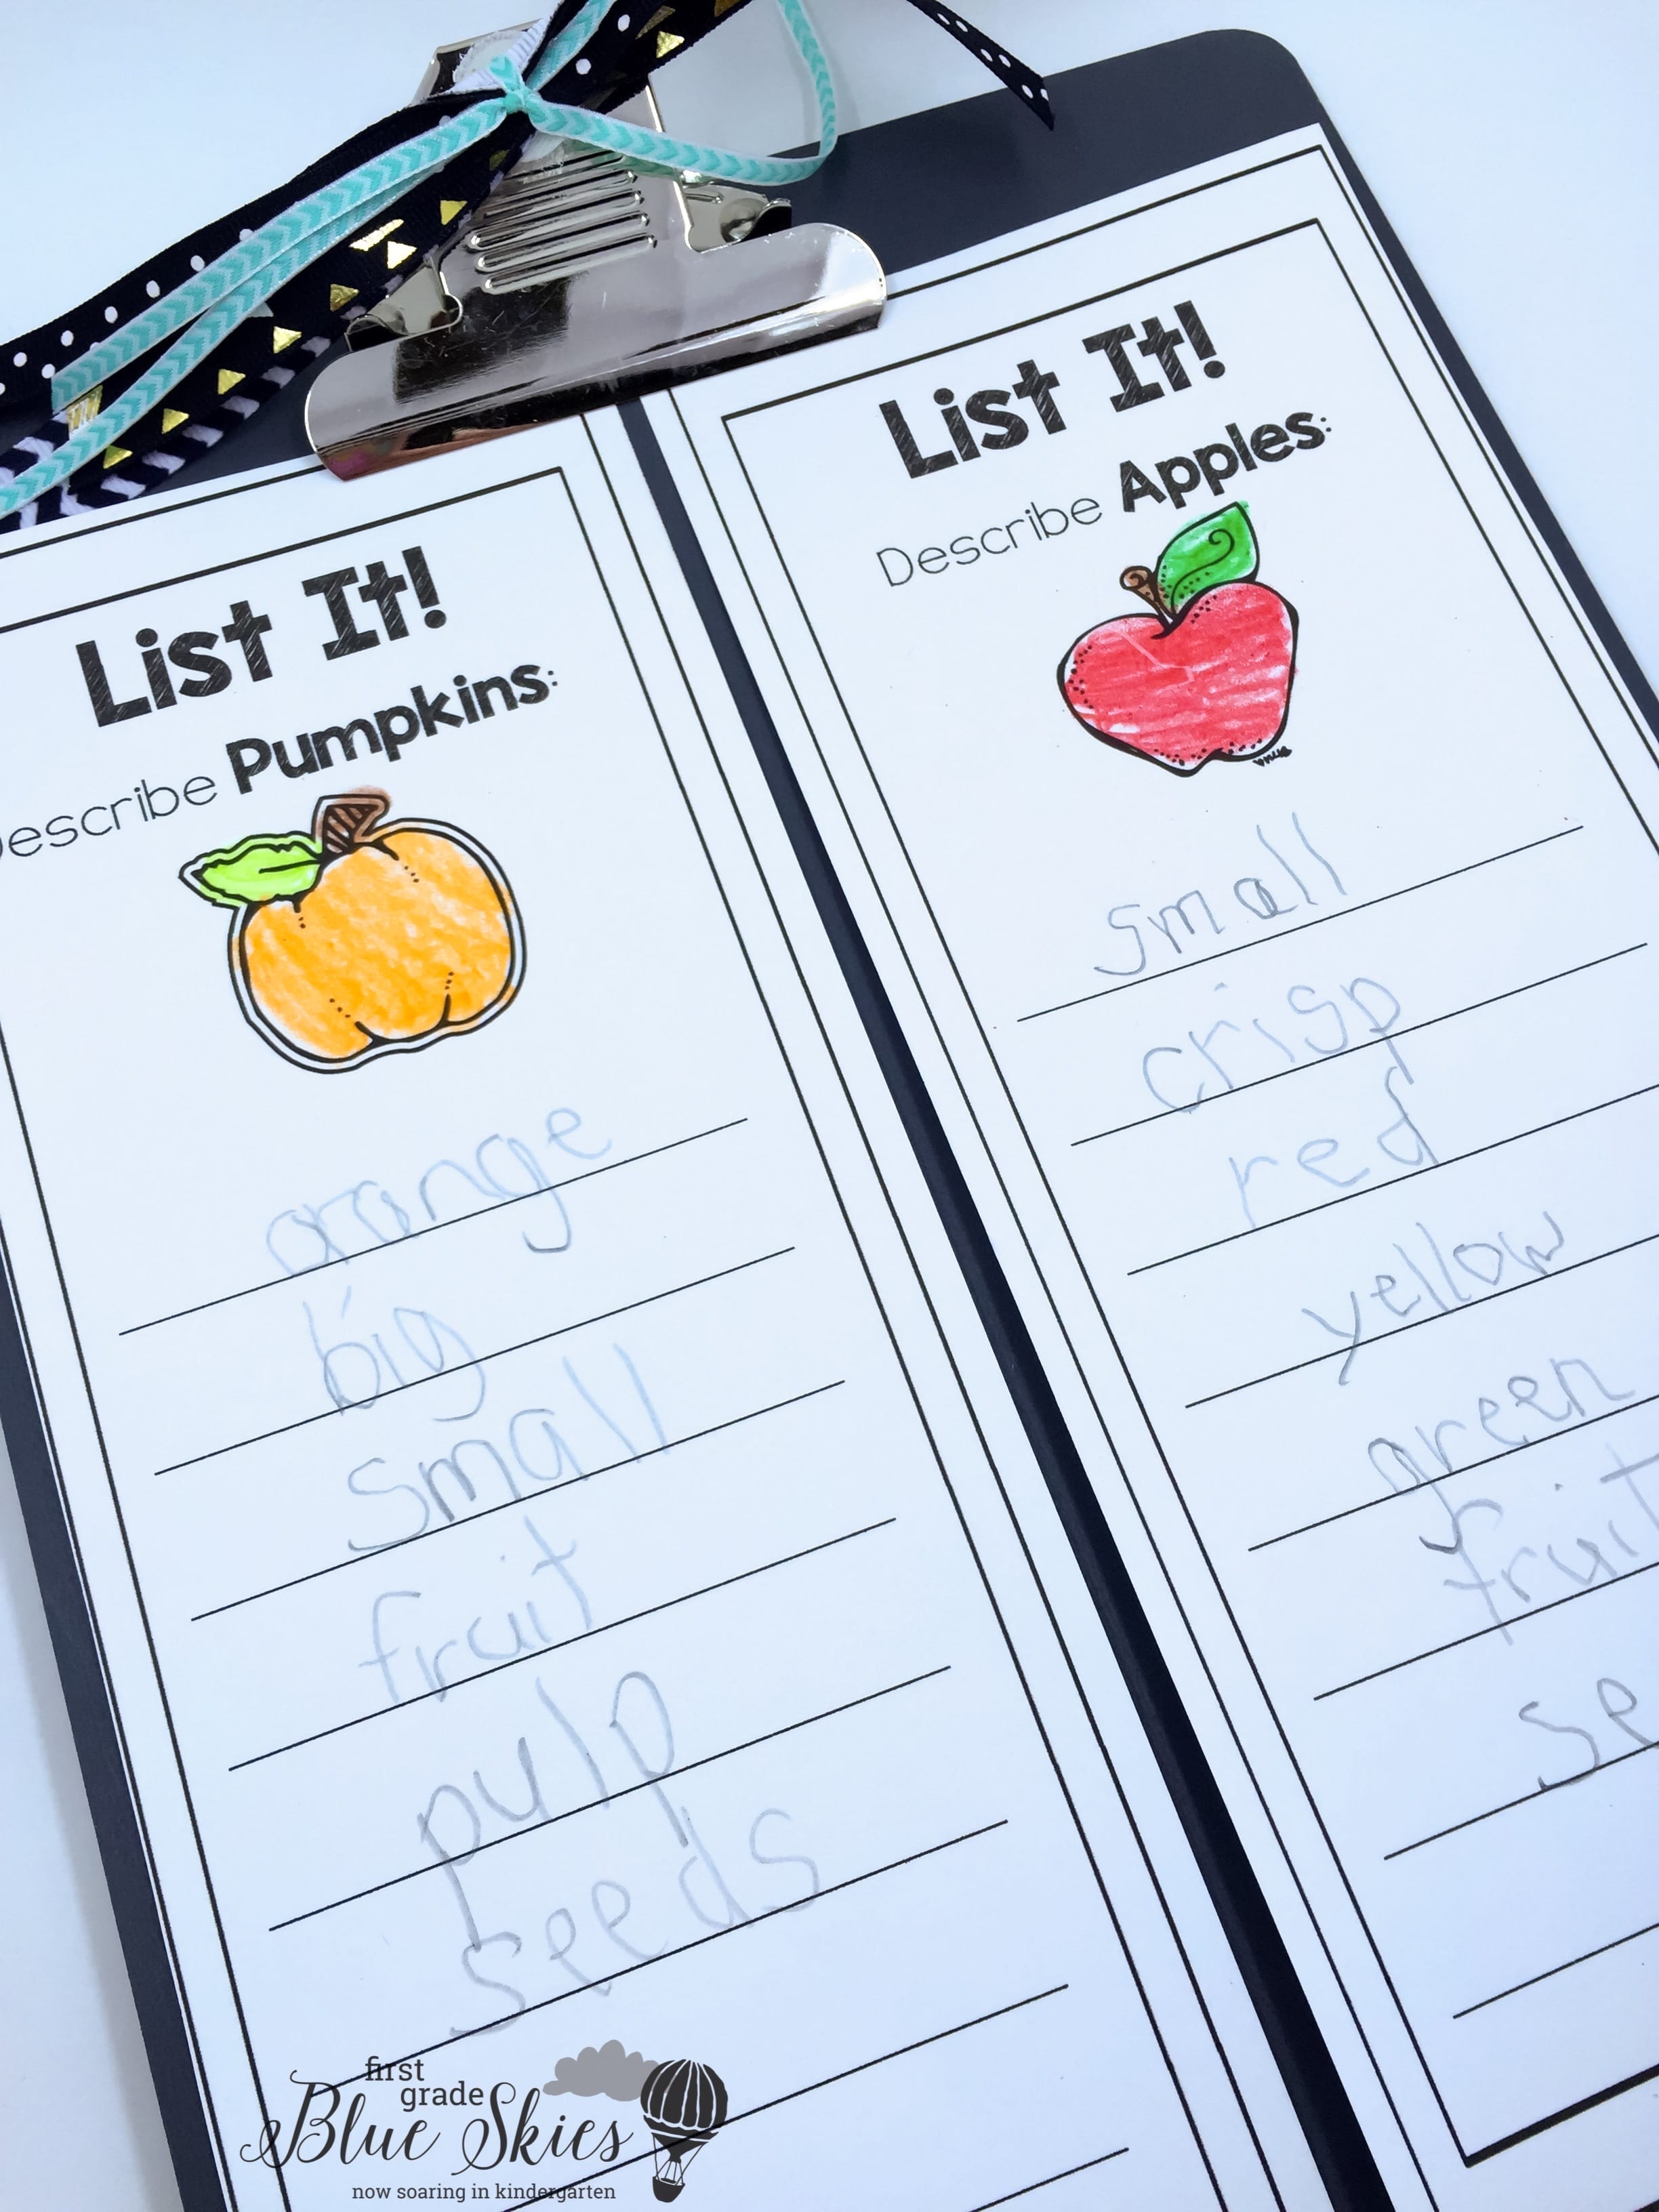 List It!
Describe Pumpkins:
orange
big
small
fruit
pulp
seeds
List It!
Describe Apples:
small
crisp
red
yellow
green
fruit
se
first
grade
Blue Skies
now soaring in kindergarten